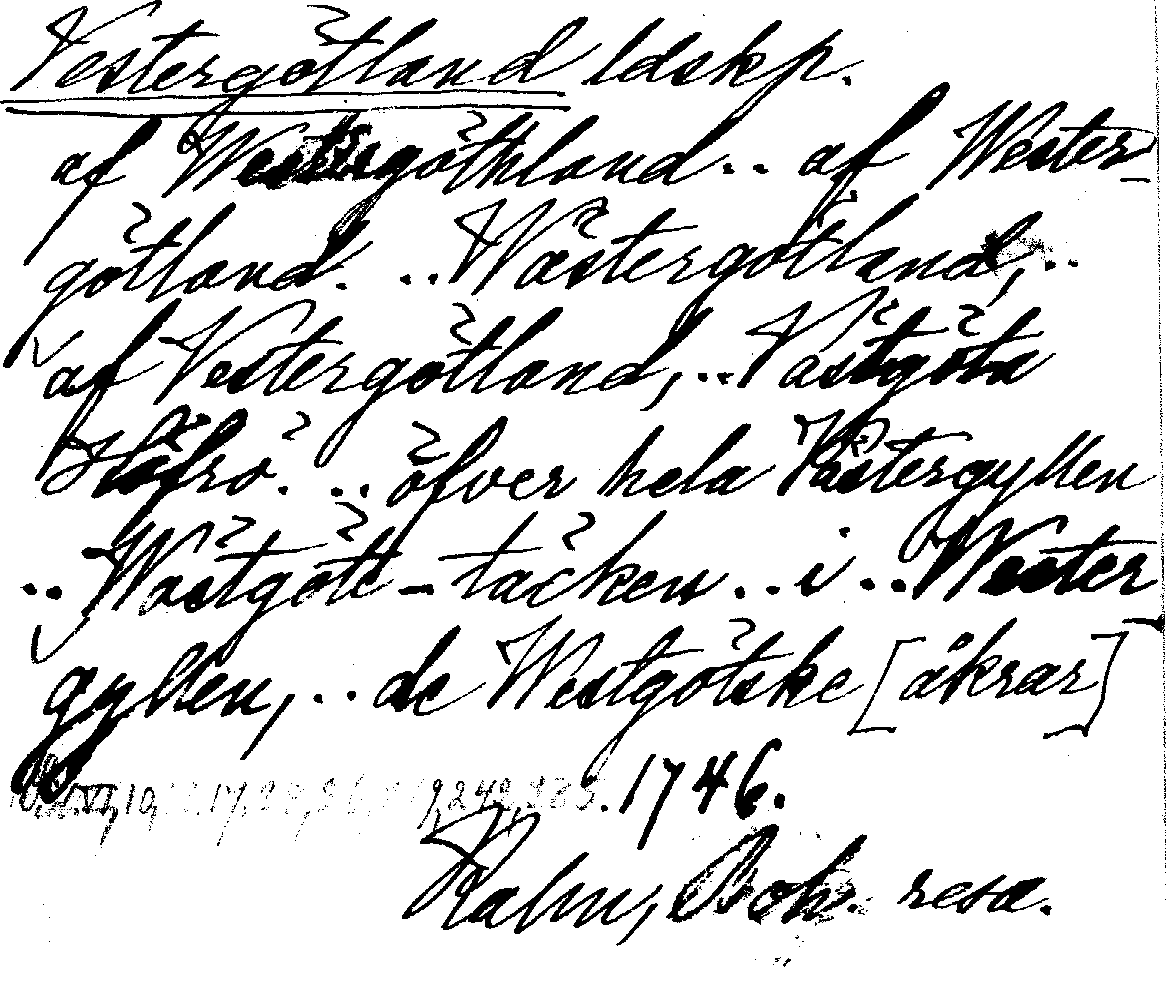 Vestergötland ldskp.
af Westergöthland.. af Wester-
götland. ..Wästergötland,..
af Vestergötland,..Västgöta
Höfrö. .. öfver hela Västergyllen
..Wästgöte-täcken.. i ..Wester-
gyllen,.. de Westgötske [åkrar]
1746.
Kalm, Boh. resa.